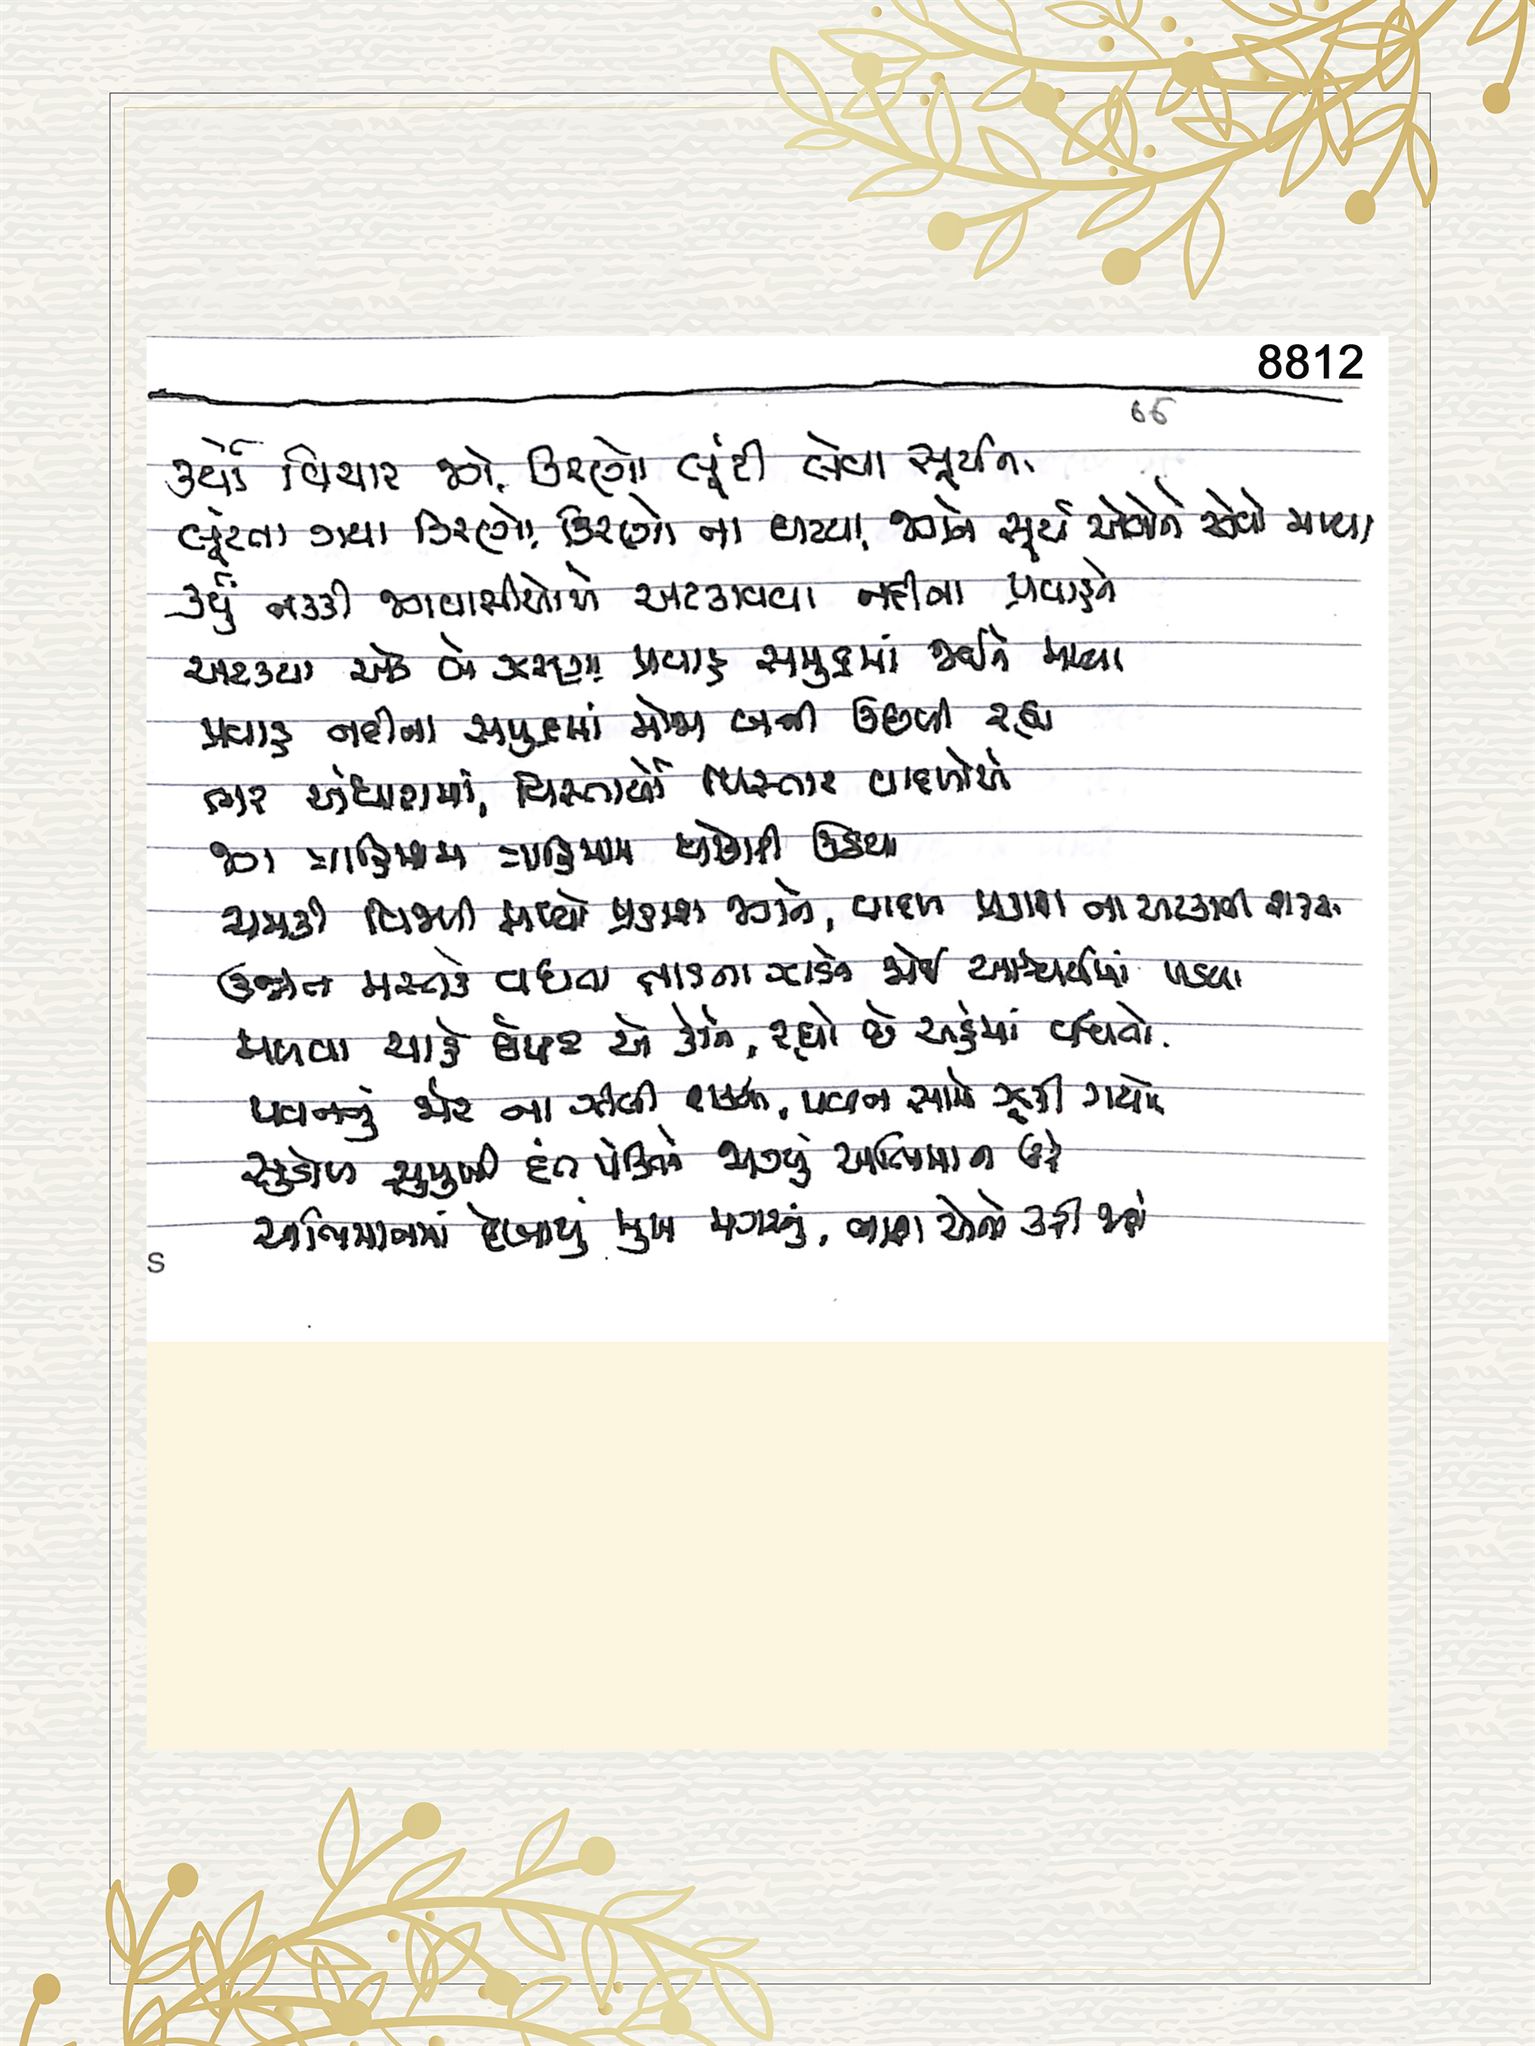 8812
66
કર્યો વિચાર જગે, કિરણો લૂંટી લેવા સૂર્યના
લૂંટતા ગયા કિરણો, કિરણો ના ઘટયા, જગને સૂર્ય એવોને એવો મળ્યા
કર્યું નક્કી જગવાસીઓએ અટકાવવા નદીના પ્રવાહને
અટકયા એક બે ઝરણા પ્રવાહ સમુદ્રમાં જઈને મળ્યા
પ્રવાહ નદીના સમુદ્રમાં મોજા બની ઉછળી રહ્યા
ભર અંધારામાં, વિસ્તાર્યો વિસ્તાર વાદળોએ
જગ ત્રાહિમામ ત્રાહિમામ પોકારી ઉઠયા
ચમકી વિજળી મળ્યો પ્રકાશ જગને, વાદળ પ્રકાશ ના અટકાવી શકયા
ઉન્નત મસ્તકે વધતા તાડના ઝાડને જોઈ આશ્ચર્યમાં પડયા
મળવા ચાહે ઉપર એ કોને, રહ્યો છે અહંમાં વધતો.
પવનનું જોર ના ઝીલી શકયો, પવન સામે ઝૂકી ગયો
સુડોળ સુમુખી દંત પંક્તિએ જાગ્યું અભિમાન ઉરે
અભિમાનમાં દેખાયું મુખ મગરનું, નાશ એનો કરી જશે
S